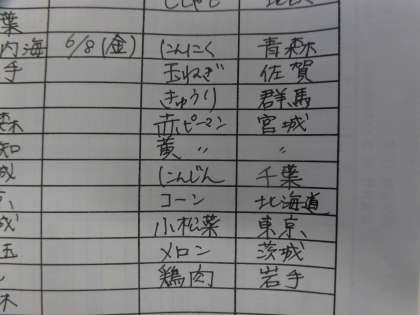 葉
内海 6/8(金) にんにく 青森
手 玉ねぎ 佐賀
きゅうり 群馬
森 赤ピーマン 宮城
知 黄 〃 〃
城 にんじん 千葉
コーン 北海道
城 小松菜 東京
玉 メロン 茨城
鶏肉 岩手
木